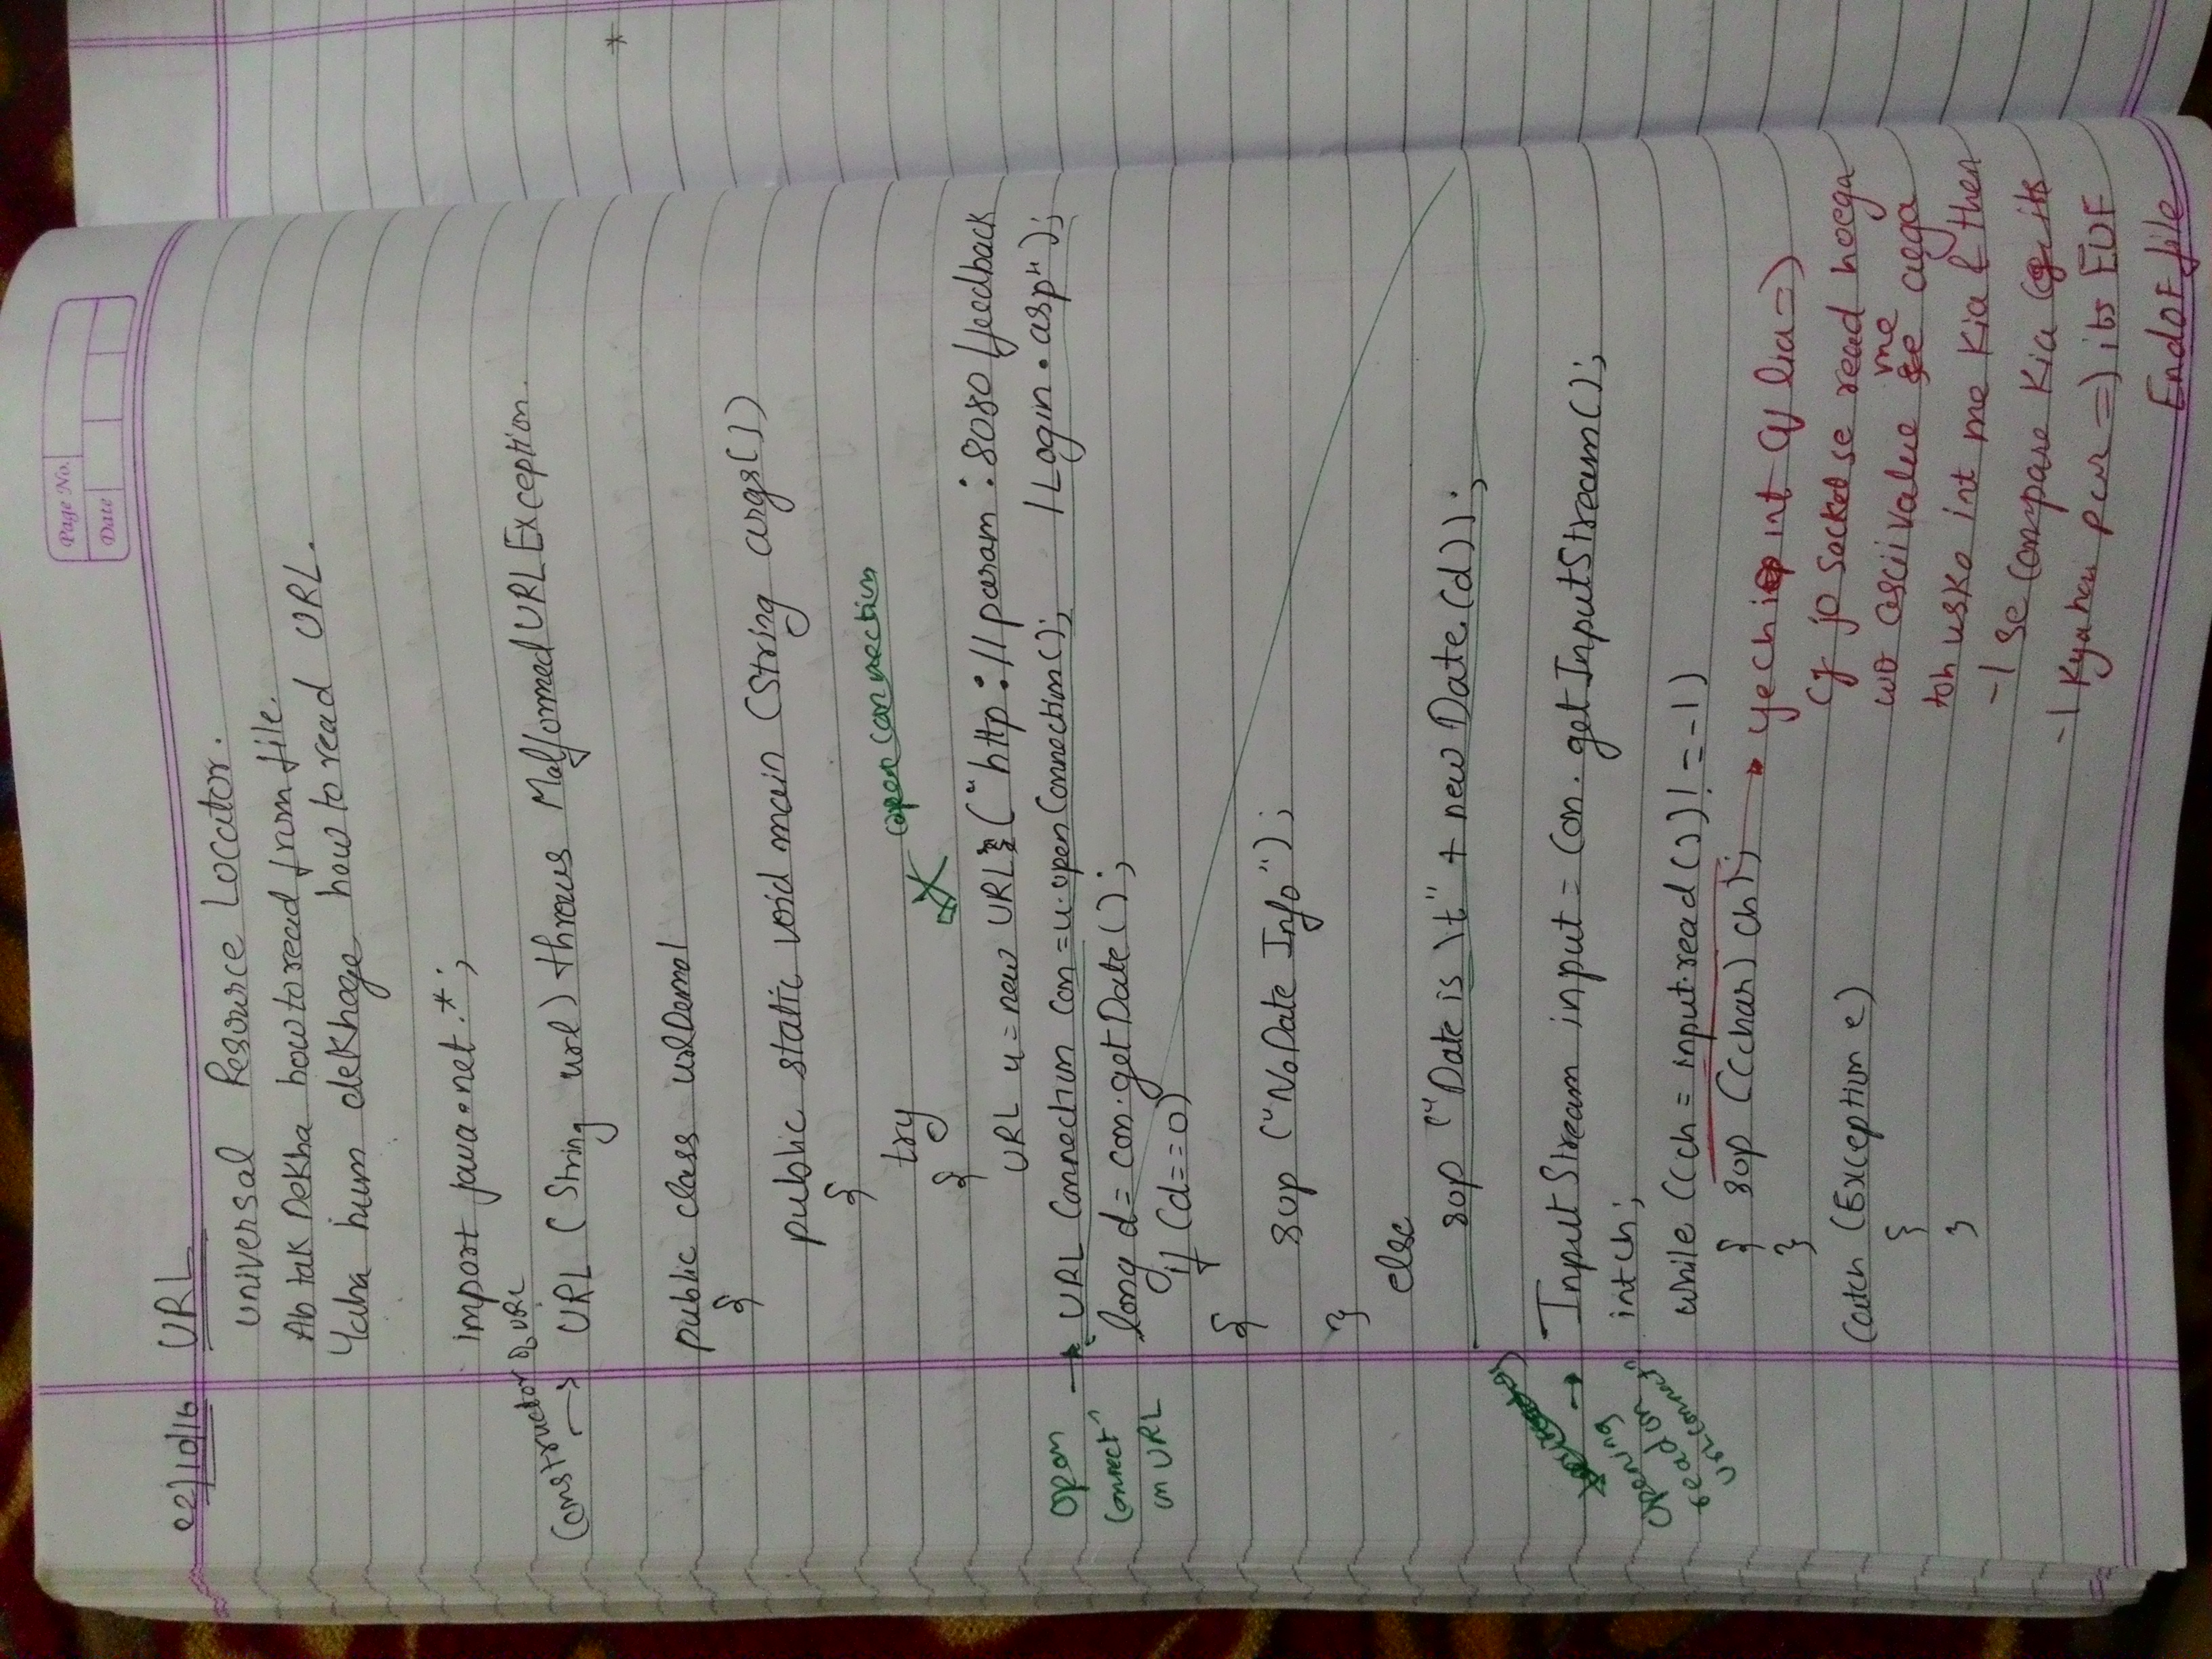 Page No.
Date
02/10/16 URL
Universal Resource Locator.
Ab tak Dekha how to read from file.
Yaha hum dekhege how to read URL.
import java.net.*;
Constructor of URL
→ URL (String url) throws MalformedURLException.
public class urlDemo1
{
public static void main (String args[])
{
try
open connection
{
URL u = new URL ("http://param:8080/feedback
/Login.asp");
Open connectn on URL → URL Connection con = u.openConnection();
long d = con.getDate();
if (d==0)
{
sop ("No Date Info");
}
else
sop ("Date is \t" + new Date(d));
Opening read on URL connectn → InputStream input = con.getInputStream();
int ch;
while ((ch = input.read())! = -1)
{ sop ((char) ch); → ye ch int lia =>
}
cz jo socket se read hoega
catch (Exception e)
wo ascii value me aega
{
toh usko int me kia & then
}
-1 se compare kia
-1 kya hai par => its EOF
End OF file
*